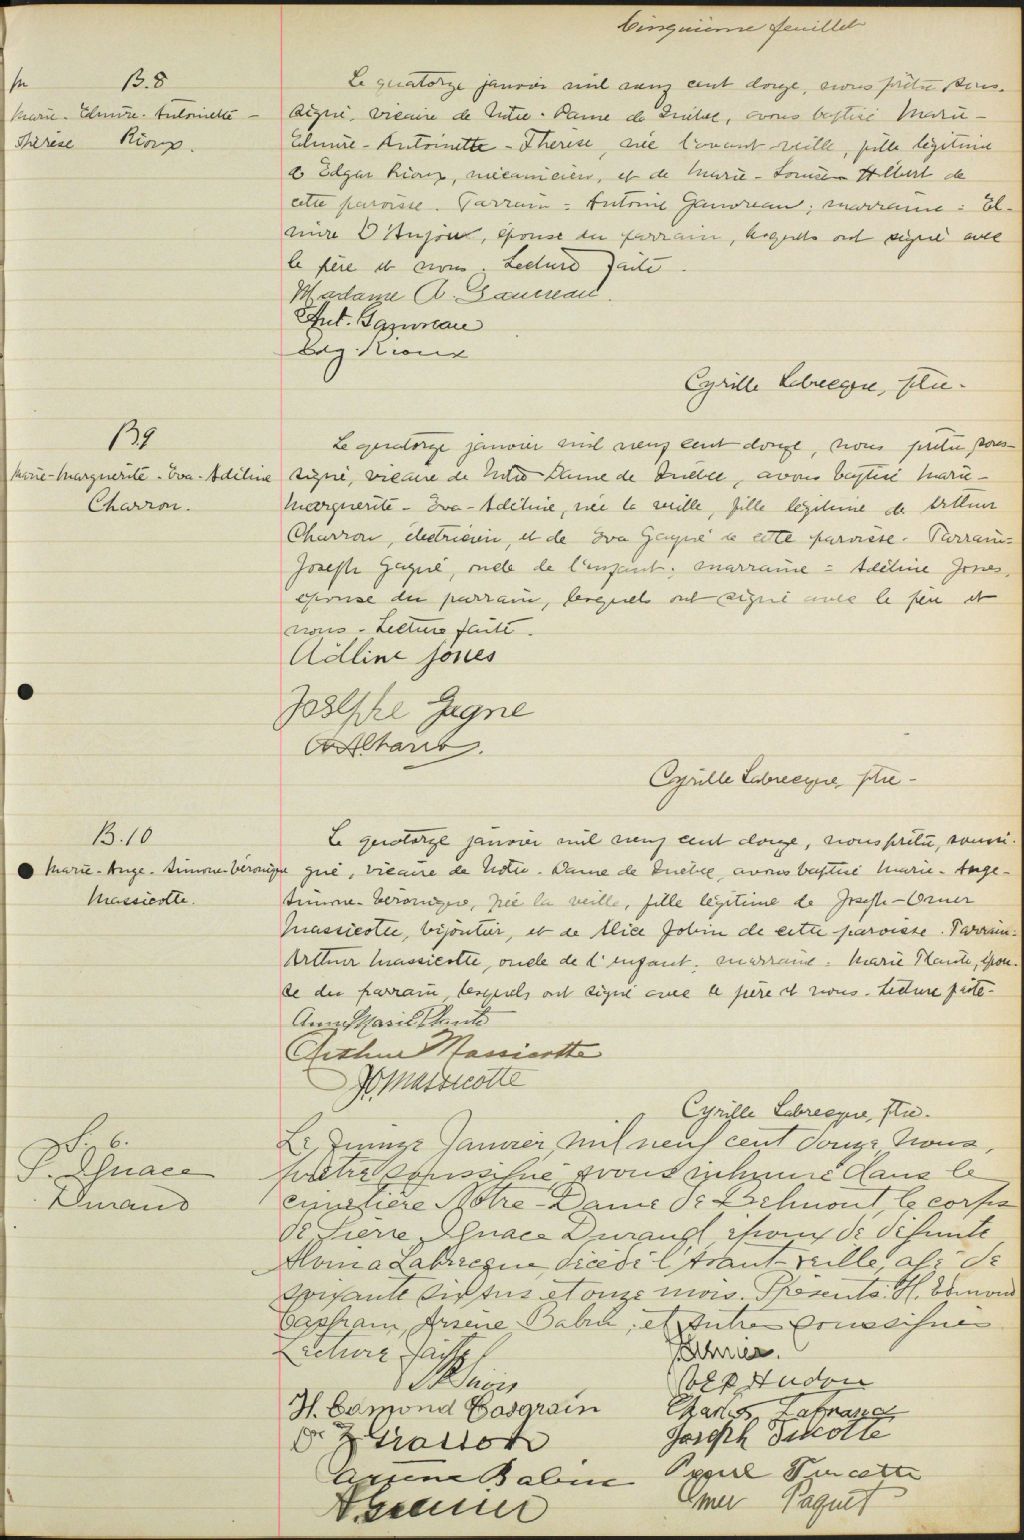 Cinquième feuillet
B.8
Marie-Elmire-Antoinette-
Thérèse Rioux.
Le quatorze janvier mil neuf cent douze, nous prêtre sous-
signé, vicaire de Notre-Dame de Québec, avons baptisé Marie-
Elmire-Antoinette-Thérèse, née l'avant veille, fille légitime
de Edgar Rioux, mécanicien, et de Marie-Louise Albert de
cette paroisse. Parrain = Antoine Gauvreau; marraine = El-
mire D'Anjou, épouse du parrain, lesquels ont signé avec
le père et nous. Lecture faite.
Madame A. Gauvreau.
Ant. Gauvreau
Edg. Rioux
Cyrille Labrecque, ptre-
B.9
Marie-Marguerite-Eva-Adéline
Charron.
Le quatorze janvier mil neuf cent douze, nous prêtre sous-
signé, vicaire de Notre-Dame de Québec, avons baptisé Marie-
Marguerite-Eva-Adéline, née la veille, fille légitime de Arthur
Charron, électricien, et de Eva Gagné de cette paroisse. Parrain =
Joseph Gagné, oncle de l'enfant; marraine = Adéline Jones,
épouse du parrain, lesquels ont signé avec le père et
nous. Lecture faite.
Adline Jones
Josephe Gagne
Cyrille Labrecque, ptre-
B.10
Marie-Ange-Simone-Véronique
Massicotte.
Le quatorze janvier mil neuf cent douze, nous prêtre, soussi-
gné, vicaire de Notre-Dame de Québec, avons baptisé Marie-Ange-
Simone-Véronique, née la veille, fille légitime de Joseph-Omer
Massicotte, bijoutier, et de Alice Jobin de cette paroisse. Parrain =
Arthur Massicotte, oncle de l'enfant; marraine = Marie Plante, épou-
se du parrain, lesquels ont signé avec le père et nous. Lecture faite-
Anna Marie Plante
Arthur Massicotte
J.O. Massicotte
Cyrille Labrecque, ptre.
S. 6.
P. Ignace
Durand
Le quinze Janvier, mil neuf cent douze, Nous,
prêtre soussigné, avons inhumé dans le
cimetière Notre-Dame de Belmont, le corps
de Pierre Ignace Durand, époux de défunte
Alvina Labrecque, décédé l'avant-veille, agé de
soixante six ans et onze mois. Présents: H. Edmond
Casgrain, Arsène Babin, et autres soussignés
Lecture faite.
H. Edmond Casgrain
Arsène Babin
A. Grenier
J. Grenier.
Hudon
Charles Lafrance
Joseph Turcotte
Turcotte
Omer Paquet